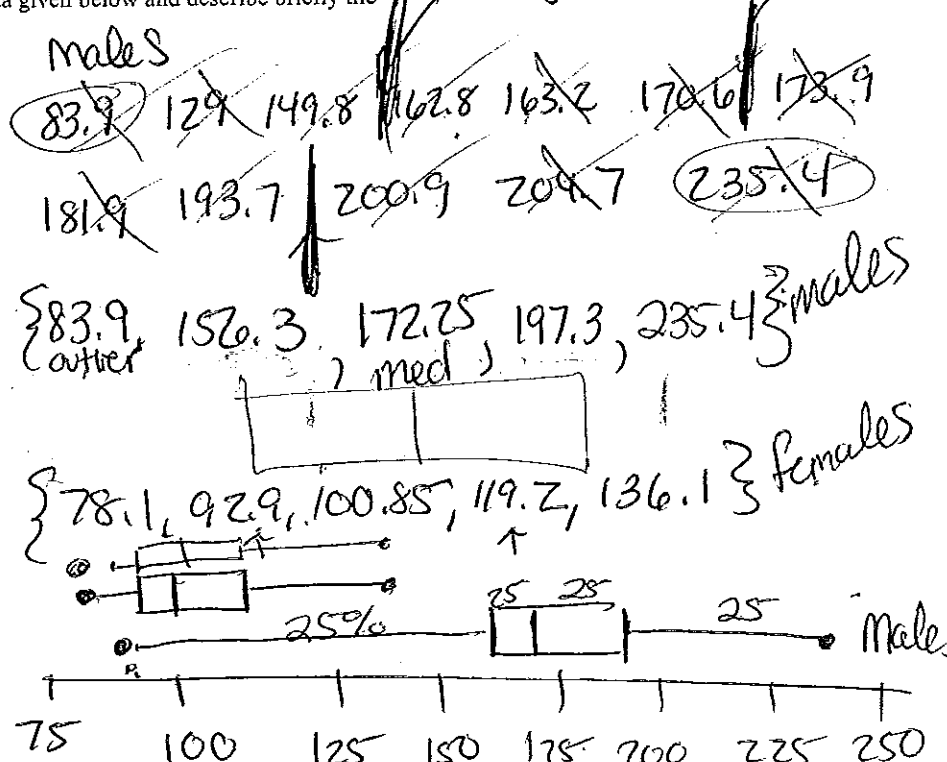 a given below and describe briefly the
males
83.9 129 149.8 162.8 163.2 170.6 173.9
181.9 193.7 200.9 204.7 235.4
{83.9, 156.3, 172.25, 197.3, 235.4} males
outlier med
{78.1, 92.9, 100.85, 119.2, 136.1} females
25 25
25% 25 Males
75 100 125 150 175 200 225 250